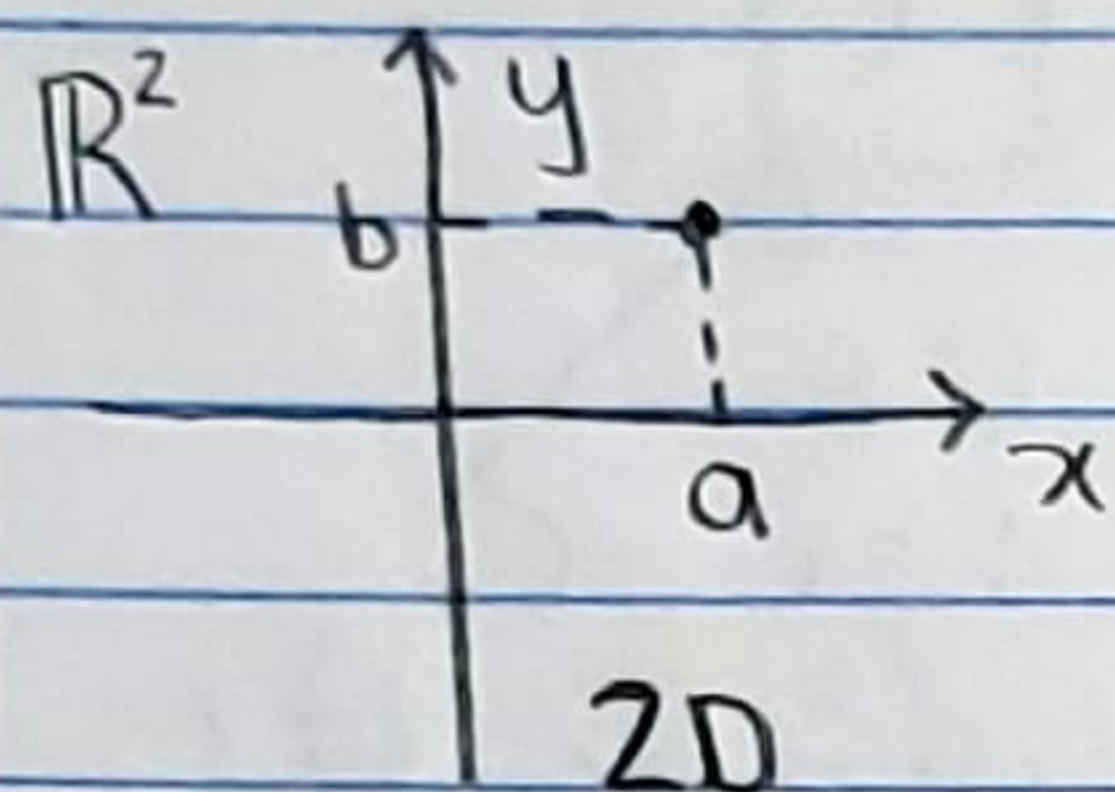 ℝ² y
b
a x
2D